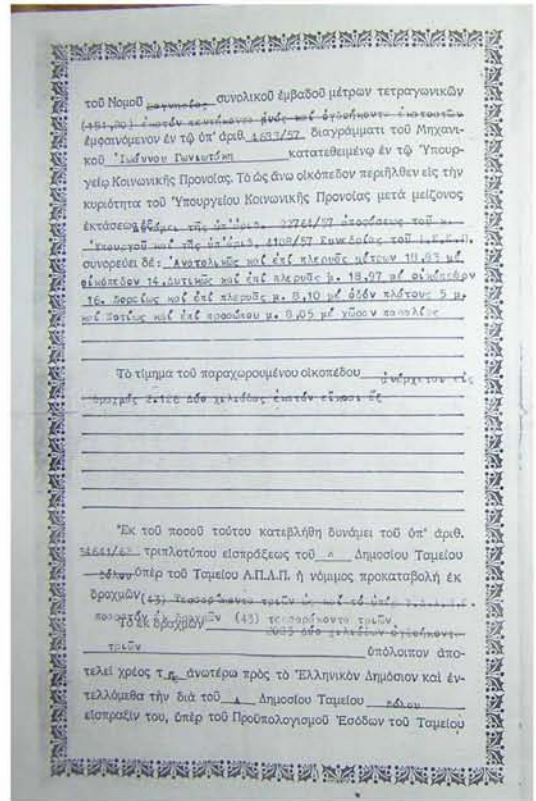 τοῦ Νομοῦ Μαγνησίας συνολικοῦ ἐμβαδοῦ μέτρων τετραγωνικῶν
(151,80) ἑκατόν πεντήκοντα ἑνός καί ὀγδοήκοντα ἑκατοστῶν
ἐμφαινόμενον ἐν τῷ ὑπ' ἀριθ. 4633/57 διαγράμματι τοῦ Μηχανι-
κοῦ Ἰωάννου Γωνιωτάκη κατατεθειμένῳ ἐν τῷ Ὑπουρ-
γείῳ Κοινωνικῆς Προνοίας. Τὸ ὡς ἄνω οἰκόπεδον περιῆλθεν εἰς τὴν
κυριότητα τοῦ Ὑπουργείου Κοινωνικῆς Προνοίας μετά μείζονος
ἐκτάσεως δυνάμει τῆς ὑπ' ἀριθ. 22761/57 ἀποφάσεως τοῦ κ.
Ὑπουργοῦ καί τῆς ὑπ' ἀριθ. 4108/57 Συνεδρίας τοῦ
συνορεύει δέ: Ἀνατολικῶς καί ἐπί πλευρᾶς μέτρων 18,93 μέ
οἰκόπεδον 14, Δυτικῶς καί ἐπί πλευρᾶς μ. 18,97 μέ οἰκόπεδον
16. Βορείως καί ἐπί πλευρᾶς μ. 8,10 μέ ὁδόν πλάτους 5 μ.
καί Νοτίως καί ἐπί προσώπου μ. 8,05 μέ χῶρον παραλίας
Τὸ τίμημα τοῦ παραχωρουμένου οἰκοπέδου ἀνέρχεται εἰς
δραχμάς 2.126 δύο χιλιάδας ἑκατόν εἴκοσι ἕξ
Ἐκ τοῦ ποσοῦ τούτου κατεβλήθη δυνάμει τοῦ ὑπ' ἀριθ.
54641/62 τριπλοτύπου εἰσπράξεως τοῦ Α Δημοσίου Ταμείου
Βόλου ὑπὲρ τοῦ Ταμείου Α.Π.Λ.Π. ἡ νόμιμος προκαταβολή ἐκ
δραχμῶν (43) Τεσσαράκοντα τριῶν ὡς καί τό ὑπέρ
ποσοστόν ἐκ δραχμῶν (43) τεσσαράκοντα τριῶν
Τὸ ἐκ δραχμῶν 2083 δύο χιλιάδων ὀγδοήκοντα
τριῶν ὑπόλοιπον ἀπο-
τελεῖ χρέος τ ἀνωτέρω πρὸς τὸ Ἑλληνικὸν Δημόσιον καὶ ἐν-
τελλόμεθα τὴν διὰ τοῦ Α Δημοσίου Ταμείου Βόλου
εἴσπραξίν του, ὑπὲρ τοῦ Προϋπολογισμοῦ Ἐσόδων τοῦ Ταμείου